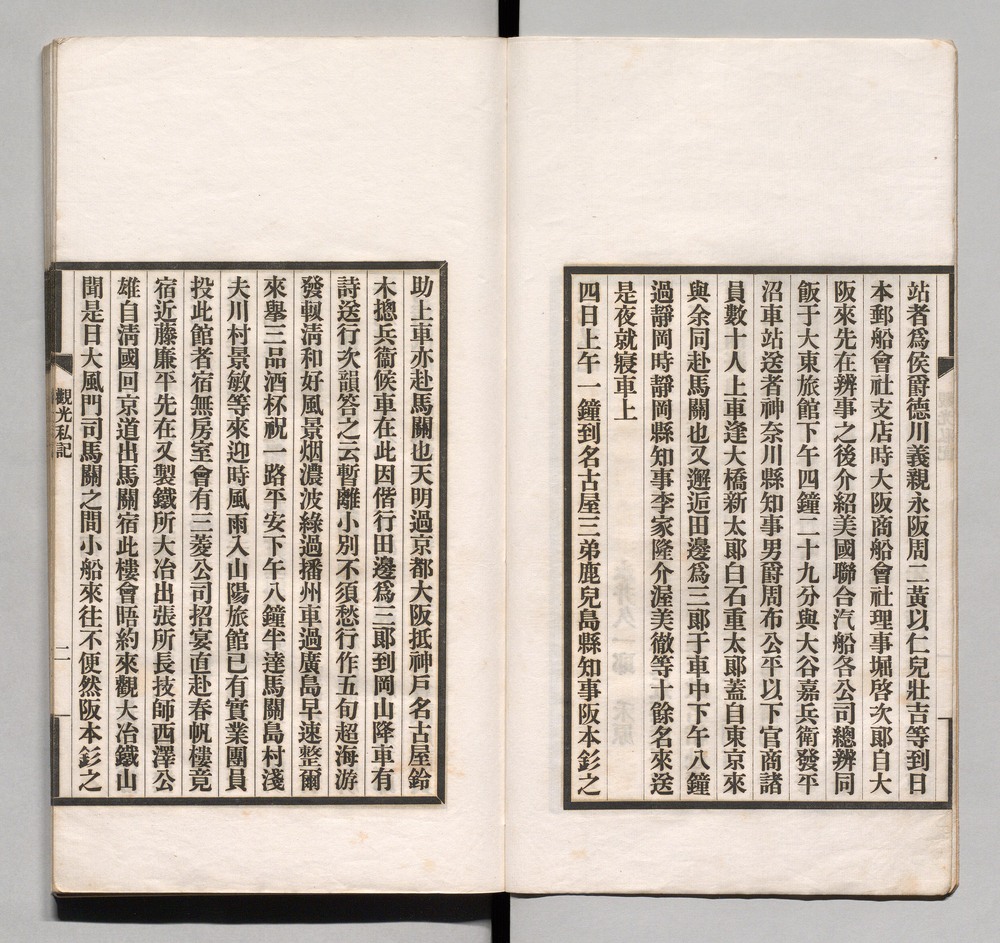 站者爲侯爵德川義親永阪周二黃以仁兒壯吉等到日
本郵船會社支店時大阪商船會社理事堀啓次郞自大
阪來先在辨事之後介紹美國聯合汽船各公司總辨同
飯于大東旅館下午四鐘二十九分與大谷嘉兵衛發平
沼車站送者神奈川縣知事男爵周布公平以下官商諸
員數十人上車逢大橋新太郞白石重太郞蓋自東京來
與余同赴馬關也又邂逅田邊爲三郞于車中下午八鐘
過靜岡時靜岡縣知事李家隆介渥美徹等十餘名來送
是夜就寢車上
四日上午一鐘到名古屋三弟鹿兒島縣知事阪本釤之
助上車亦赴馬關也天明過京都大阪抵神戶名古屋鈴
木摠兵衞候車在此因偕行田邊爲三郞到岡山降車有
詩送行次韻答之云暫離小別不須愁行作五旬超海游
發軔淸和好風景烟濃波綠過播州車過廣島早速整爾
來舉三品酒杯祝一路平安下午八鐘半達馬關島村淺
夫川村景敏等來迎時風雨入山陽旅館已有實業團員
投此館者宿無房室會有三菱公司招宴直赴春帆樓竟
宿近藤廉平先在又製鐵所大冶出張所長技師西澤公
雄自淸國回京道出馬關宿此樓會晤約來觀大冶鐵山
聞是日大風門司馬關之間小船來往不便然阪本釤之
觀光私記
二